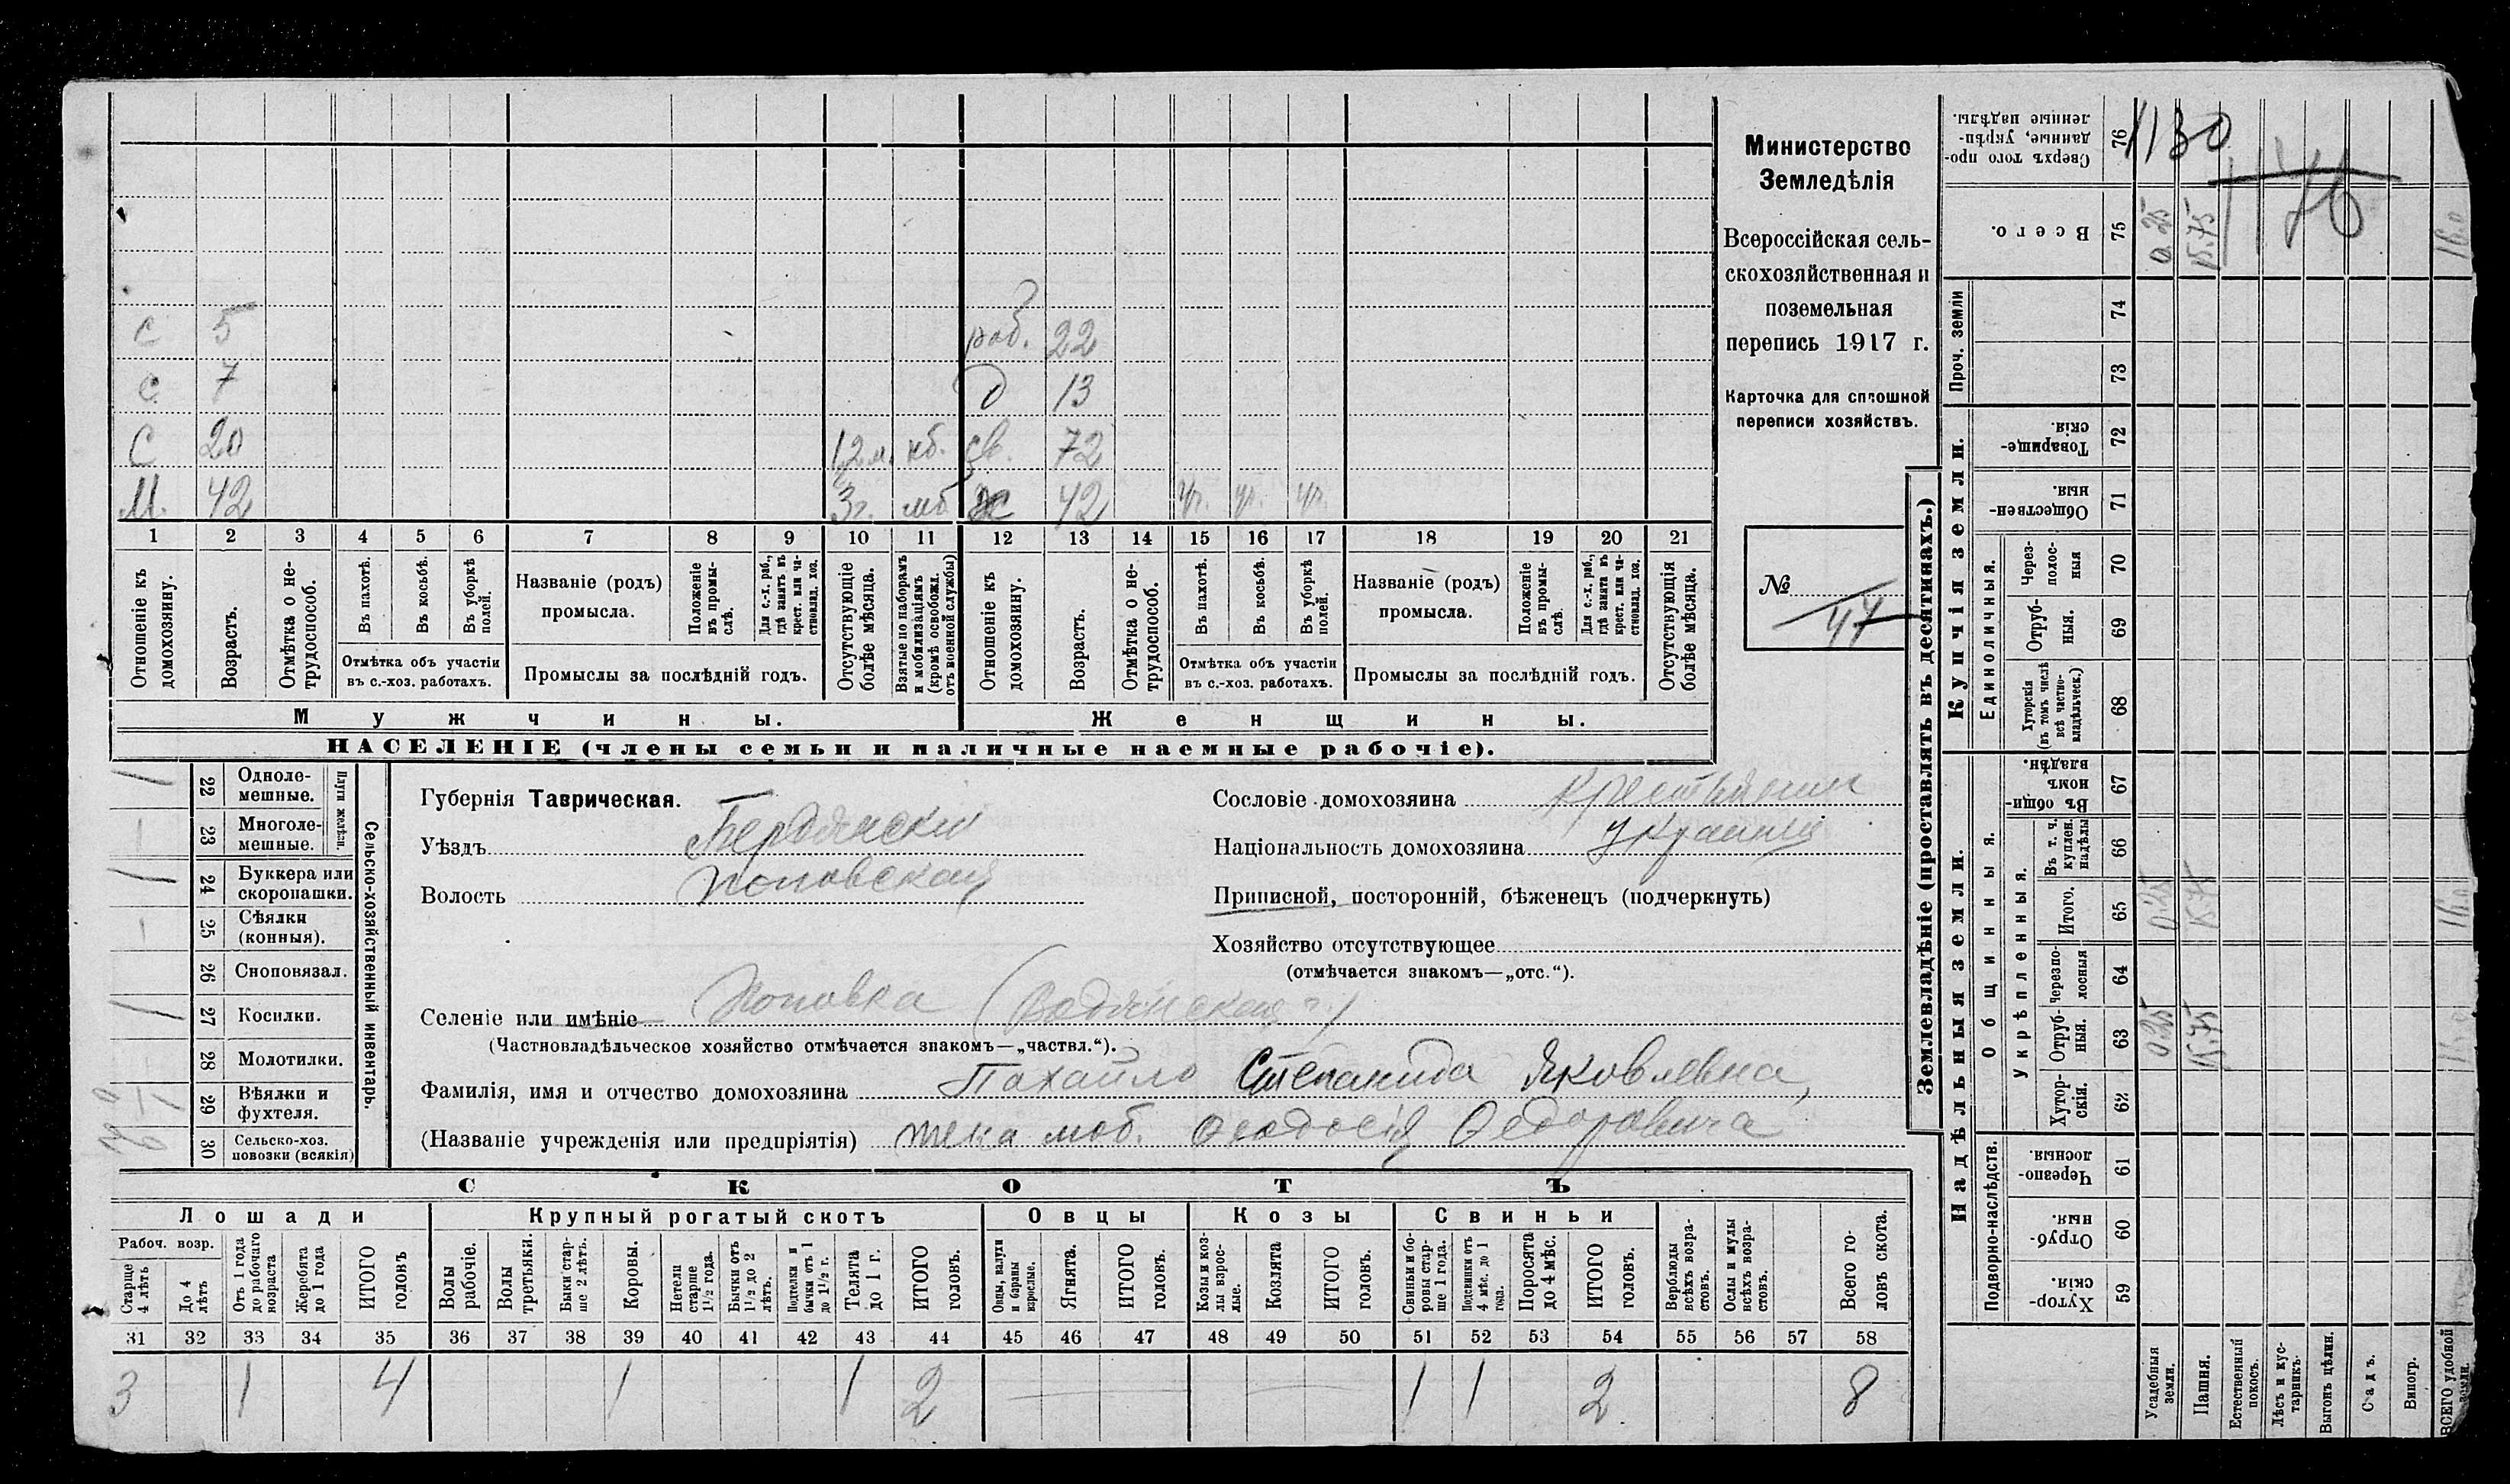 Министерство
Земледѣлія
Всероссійская сель-
скохозяйственная и
поземельная
перепись 1917 г.
Карточка для сплошной
переписи хозяйствъ.
№
47
1130
176
с 5 раб. 22
с 7 д 13
с 20 12 м. нб. св. 72
М. 42 3 г. мб ж 42 ур. ур. ур.
1 2 3 4 5 6 7 8 9 10 11 12 13 14 15 16 17 18 19 20 21
Отношеніе къ домохозяину.
Возрастъ.
Отмѣтка о не-трудоспособ.
Въ пахотѣ.
Въ косьбѣ.
Въ уборкѣ полей.
Отмѣтка объ участіи въ с.-хоз. работахъ.
Названіе (родъ) промысла.
Положеніе въ промы-слѣ.
Для с.-х. раб., гдѣ занятъ въ крест. или ча-стновлад. хоз.
Промыслы за послѣдній годъ.
Отсутствующіе болѣе мѣсяца.
Взятые по наборамъ и мобилизаціямъ (кромѣ освобожд. отъ военной службы)
Отношеніе къ домохозяину.
Возрастъ.
Отмѣтка о не-трудоспособ.
Въ пахотѣ.
Въ косьбѣ.
Въ уборкѣ полей.
Отмѣтка объ участіи въ с.-хоз. работахъ.
Названіе (родъ) промысла.
Положеніе въ промы-слѣ.
Для с.-х. раб., гдѣ занята въ крест. или ча-стновлад. хоз.
Промыслы за послѣдній годъ.
Отсутствующія болѣе мѣсяца.
Мужчины. Женщины.
НАСЕЛЕНІЕ (члены семьи и наличные наемные рабочіе).
Сельско-хозяйственный инвентарь.
Плуги желѣзн.
1 22 Одноле-мешные.
1 23 Многоле-мешные.
1 24 Буккера или скоропашки.
1 25 Сѣялки (конныя).
26 Сноповязал.
1 27 Косилки.
28 Молотилки.
1 29 Вѣялки и фухтеля.
30 Сельско-хоз. повозки (всякія)
Губернія Таврическая.
Уѣздъ Бердянски
Волость Поповская
Сословіе домохозяина Крестьянин
Національность домохозяина Украинц
Приписной, посторонній, бѣженецъ (подчеркнуть)
Хозяйство отсутствующее
(отмѣчается знакомъ—„отс.“).
Селеніе или имѣніе Поповка (Водянская)
(Частновладѣльческое хозяйство отмѣчается знакомъ—„частвл.“).
Фамилія, имя и отчество домохозяина Пахайло Степанида Яковлевна,
(Названіе учрежденія или предпріятія) жена моб. Ѳеодосія Ѳедоровича
СКОТЪ
Лошади Крупный рогатый скотъ Овцы Козы Свиньи
Рабоч. возр.
Старше 4 лѣтъ
До 4 лѣтъ
Отъ 1 года до рабочаго возраста
Жеребята до 1 года
ИТОГО головъ
Волы рабочіе.
Волы третьяки.
Быки стар-ше 2 лѣтъ.
Коровы.
Нетели старше 1½ года.
Бычки отъ 1½ до 2 лѣтъ.
Подтелки и бычки отъ 1 до 1½ г.
Телята до 1 г.
ИТОГО головъ.
Овцы, валухи и бараны взрослые.
Ягнята.
ИТОГО головъ.
Козы и коз-лы взрос-лые.
Козлята
ИТОГО головъ.
Свиньи и бо-ровы стар-ше 1 года.
Подсвинки отъ 4 мѣс. до 1 года.
Поросята до 4 мѣс.
ИТОГО головъ.
Верблюды всѣхъ возра-стовъ.
Ослы и мулы всѣхъ возра-стовъ.
Всего го-ловъ скота.
31 32 33 34 35 36 37 38 39 40 41 42 43 44 45 46 47 48 49 50 51 52 53 54 55 56 57 58
3 1 4 1 1 2 1 1 2 8
Землевладѣніе (проставлять въ десятинахъ.)
Надѣльныя земли. Купчія земли. Проч. земли
Подворно-наслѣдств.
Общинныя.
Укрѣпленныя.
Единоличныя.
Сверхъ того про-данные, укрѣп-ленные надѣлы. 76
Всего. 75 0.25 15.75 16.0
74
73
Товарище-скія. 72
Обществен-ныя. 71
Через-полос-ныя 70
Отруб-ныя. 69
Хуторскія (въ томъ числѣ всѣ частно-владѣльческ.) 68
Въ общин-номъ владѣн. 67
Въ т. ч. куплен. надѣлы 66
Итого. 65 0.25 15.75 16.0
Черезпо-лосныя 64
Отруб-ныя. 63 0.25 15.75 16.0
Хутор-скія. 62
Черезпо-лосныя. 61
Отруб-ныя. 60
Хутор-скія. 59
Усадебныя земли.
Пашня.
Естественный покосъ.
Лѣсъ и кус-тарникъ.
Выгонъ цѣлин.
Садъ.
Виногр.
ВСЕГО удобной земли.